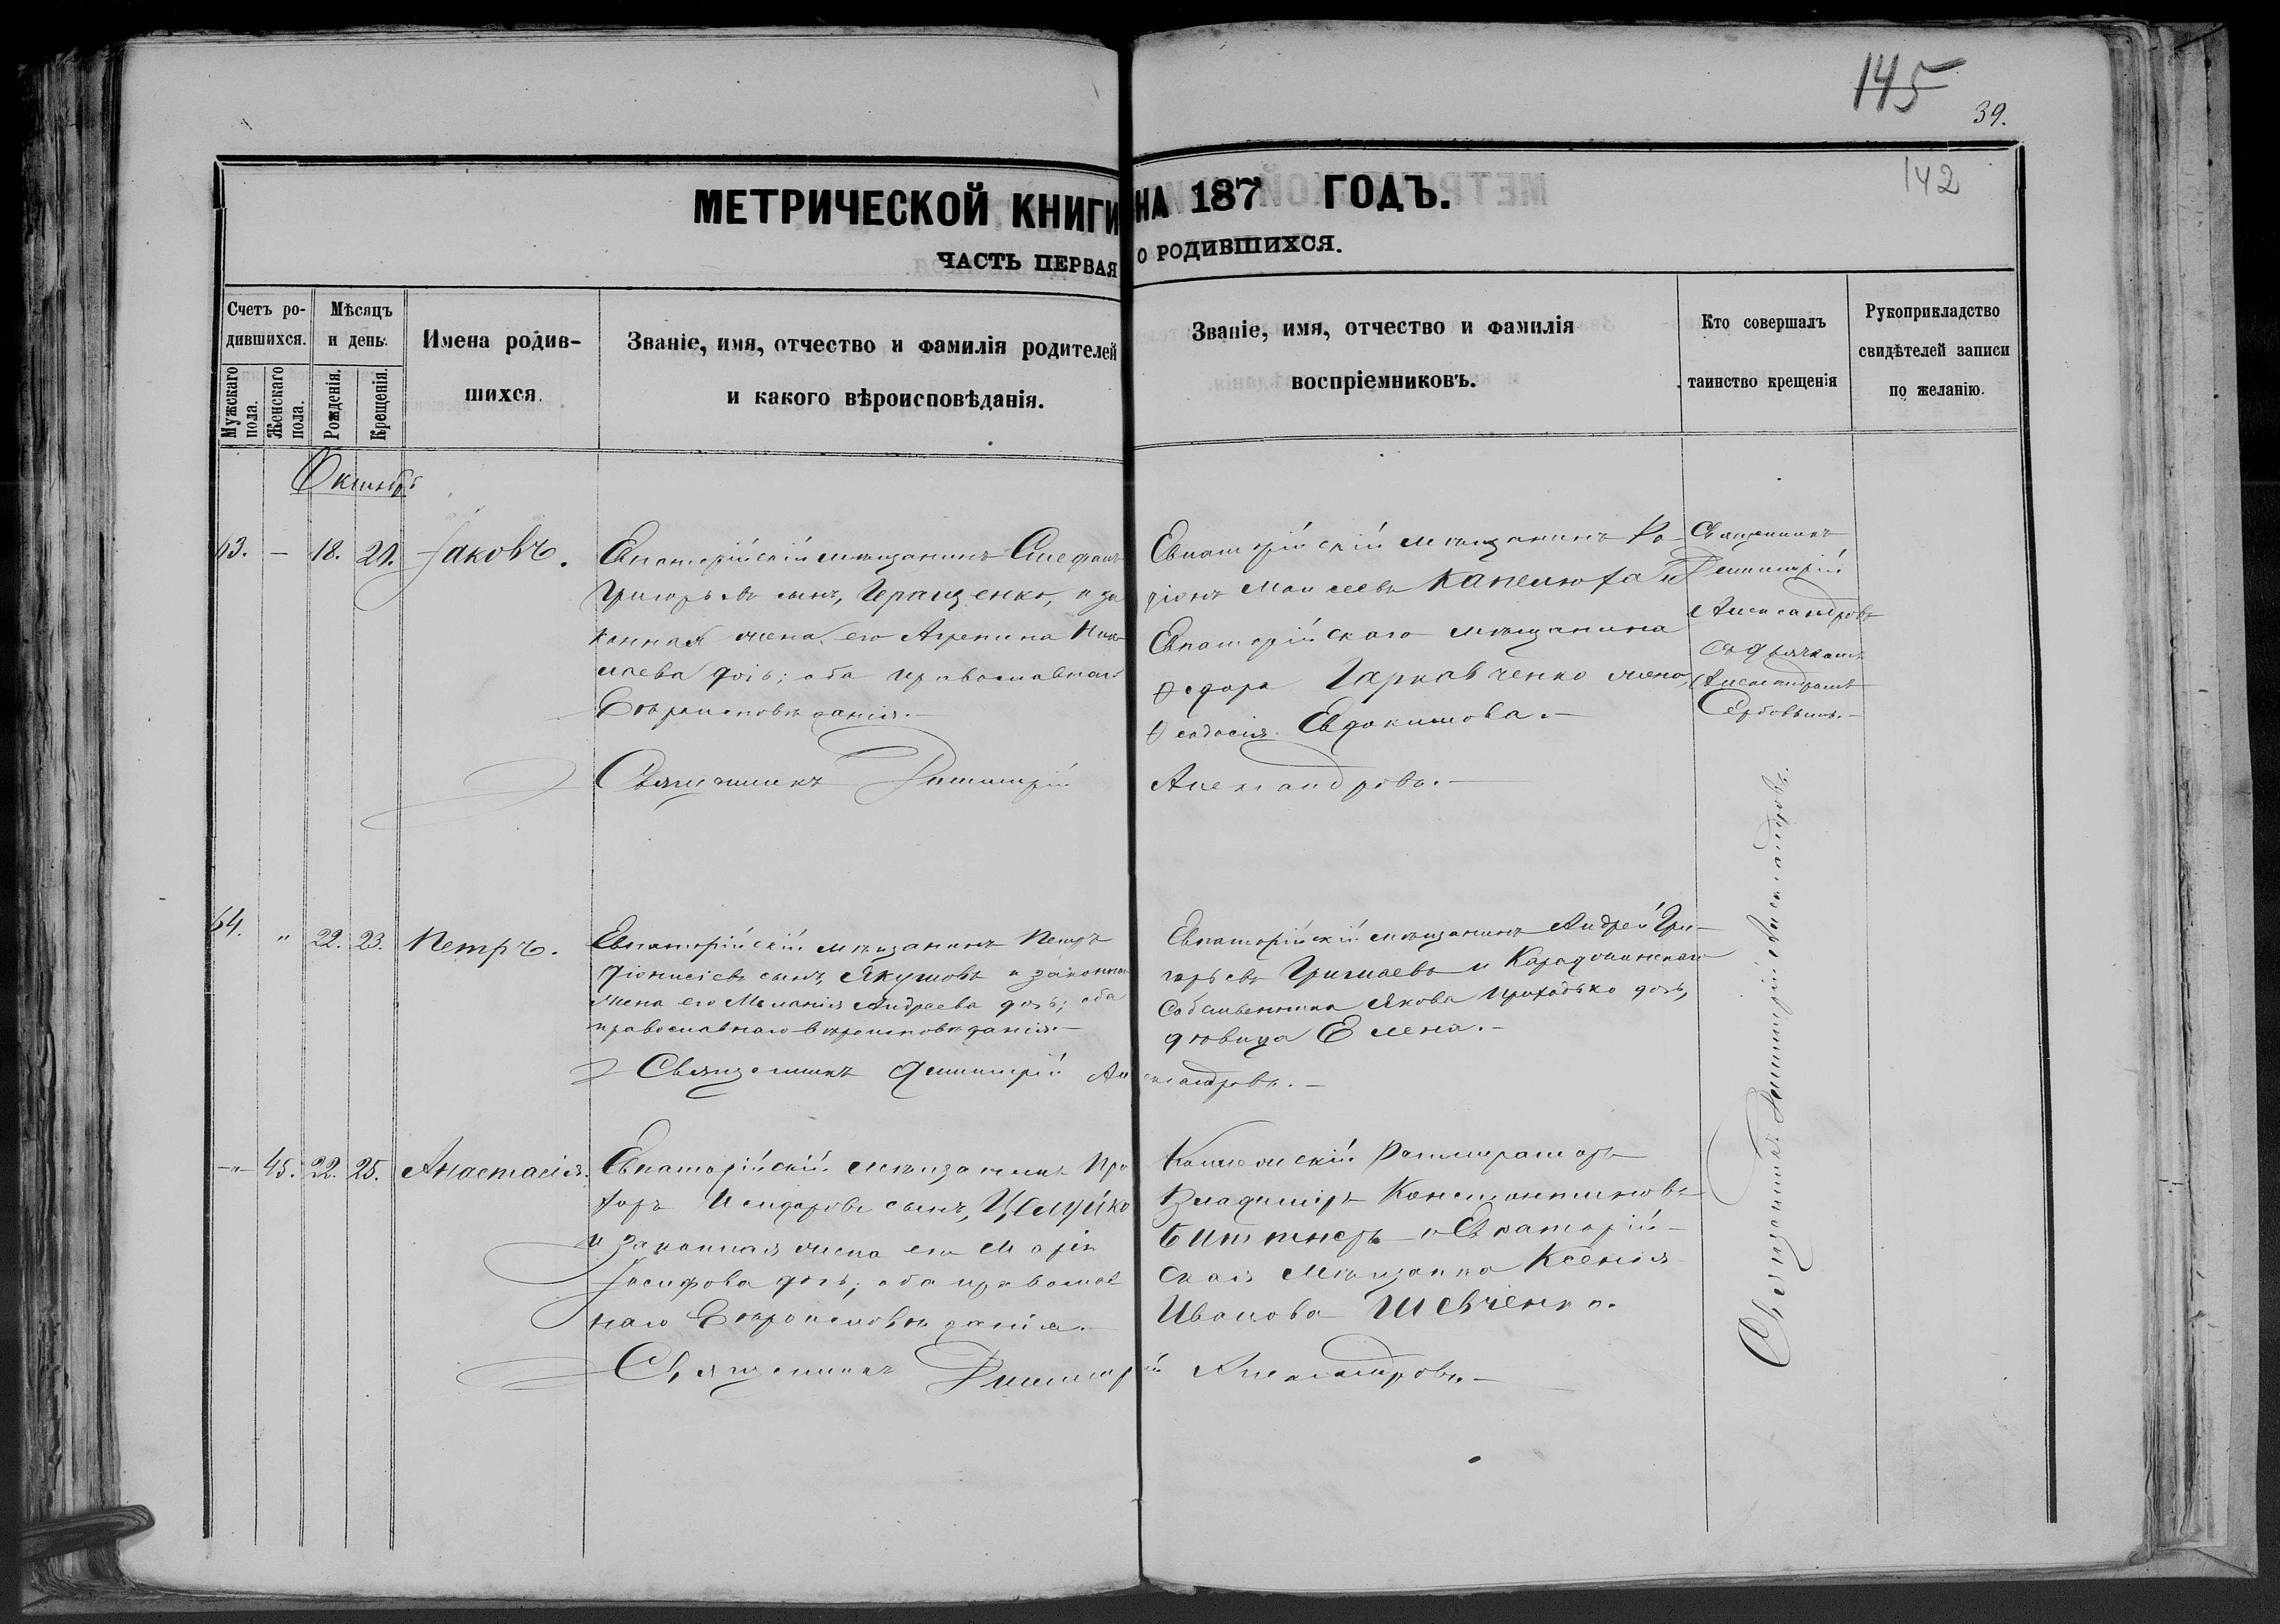 145
39.
142
МЕТРИЧЕСКОЙ КНИГИ НА 187 ГОДЪ.
ЧАСТЬ ПЕРВАЯ О РОДИВШИХСЯ.
Счетъ ро-
дившихся.
Мужскаго пола.
Женскаго пола.
Мѣсяцъ
и день.
Рожденія.
Крещенія.
Имена родив-
шихся.
Званіе, имя, отчество и фамилія родителей
и какого вѣроисповѣданія.
Званіе, имя, отчество и фамилія
воспріемниковъ.
Кто совершалъ
таинство крещенія
Рукоприкладство
свидѣтелей записи
по желанію.
Октябрь
63. — 18. 21. Іаковъ.
Евпаторійскій мѣщанинъ Стефанъ
Григорьевъ сынъ, Геращенко, и за
конная жена его Агрепина Нико
лаева дочь; оба православнаго
Вѣроисповѣданія.—
Священникъ Димитрій
Евпаторійскій мѣщанинъ
Моисеевъ Капелюха и
Евпаторійскаго мѣщанина
Ѳедора Гаркавченко жена,
Ѳеодосія Евдокимова.—
Александровъ.—
Священникъ
Димитрій
Александровъ
съ дьячкомъ
Александромъ
Сербовымъ.—
64. " 22. 23. Петръ.
Евпаторійскій мѣщанинъ Петръ
Діонисіевъ сынъ, Якушовъ и законная
жена его Меланія Андреева дочь; оба
православнаго вѣроисповѣданія.—
Священникъ Димитрій Александровъ.—
Евпаторійскій мѣщанинъ Андрей Гри-
горьевъ и
собственника Якова Приходько дочь,
дѣвица Елена.—
—"— 45. 22. 25. Анастасія.
Евпаторійскій мѣщанинъ Про
хоръ Исидоровъ сынъ,
и законная жена его Марія
Іосифова дочь; оба православ
наго Вѣроисповѣданія.—
Священникъ Димитрій Александровъ.—
Коллежскій Регистраторъ
Владиміръ Константиновъ
Биттнеръ и Евпаторій-
ская Мѣщанка Ксенія
Иванова Шевченко.
Священникъ Димитрій Александровъ.